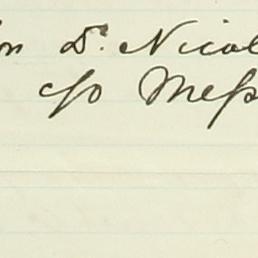 on Dr. Nicol
c/o Mess